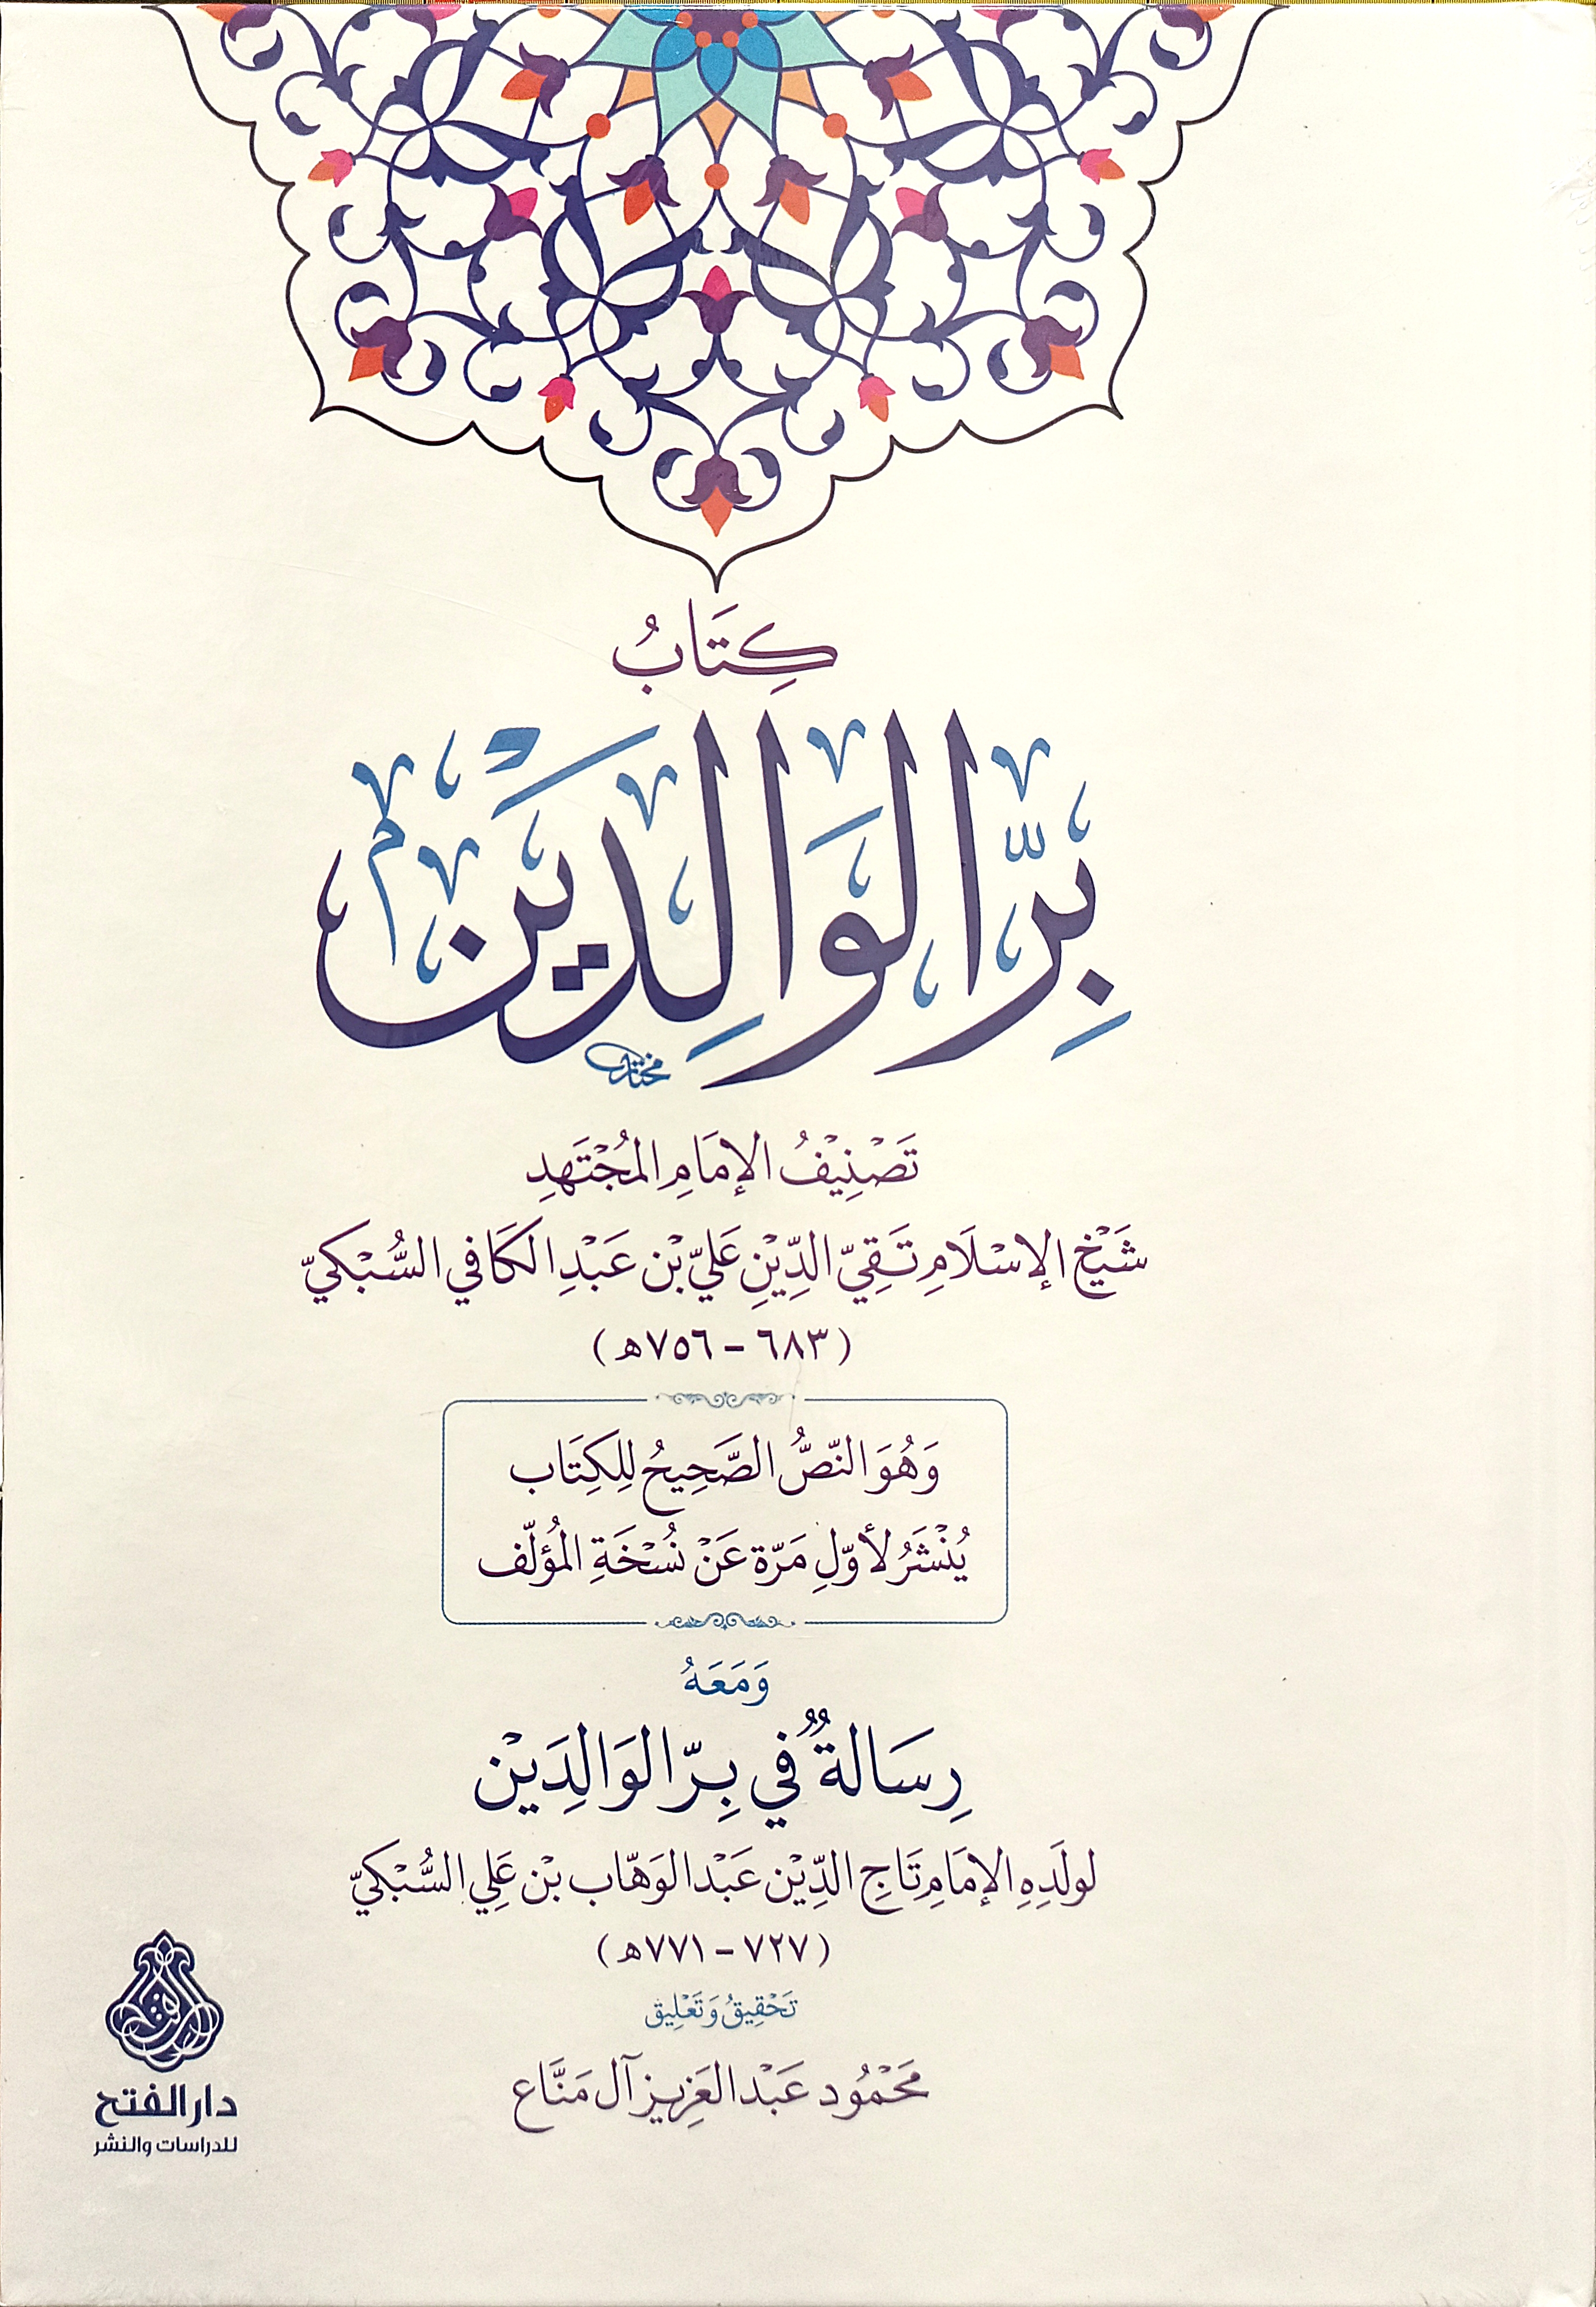 كِتَابُ
بِرِّ الْوَالِدَيْنِ
مختار
تَصْنِيْفُ الإمَامِ المُجْتَهِدِ
شَيْخِ الإسْلَامِ تَقِيّ الدِّيْنِ عَليّ بْن عَبْدِ الكَافي السُّبْكيّ
(٦٨٣ - ٧٥٦ه)
وَهُوَ النّصُّ الصَّحِيحُ لِلكِتَاب
يُنْشَرُ لأوّلِ مَرّة عَنْ نُسْخَةِ المُؤلّف
وَمَعَهُ
رِسَالةٌ في بِرّ الوَالِدَيْن
لولَدِهِ الإمَامِ تَاجِ الدِّيْن عَبْد الوَهّاب بْن عَلِي السُّبْكيّ
(٧٢٧ - ٧٧١ه)
تَحْقِيقُ وَتَعْلِيق
مَحْمُود عَبْد العَزِيز آل مَنَّاع
الفتح
دار الفتح
للدراسات والنشر